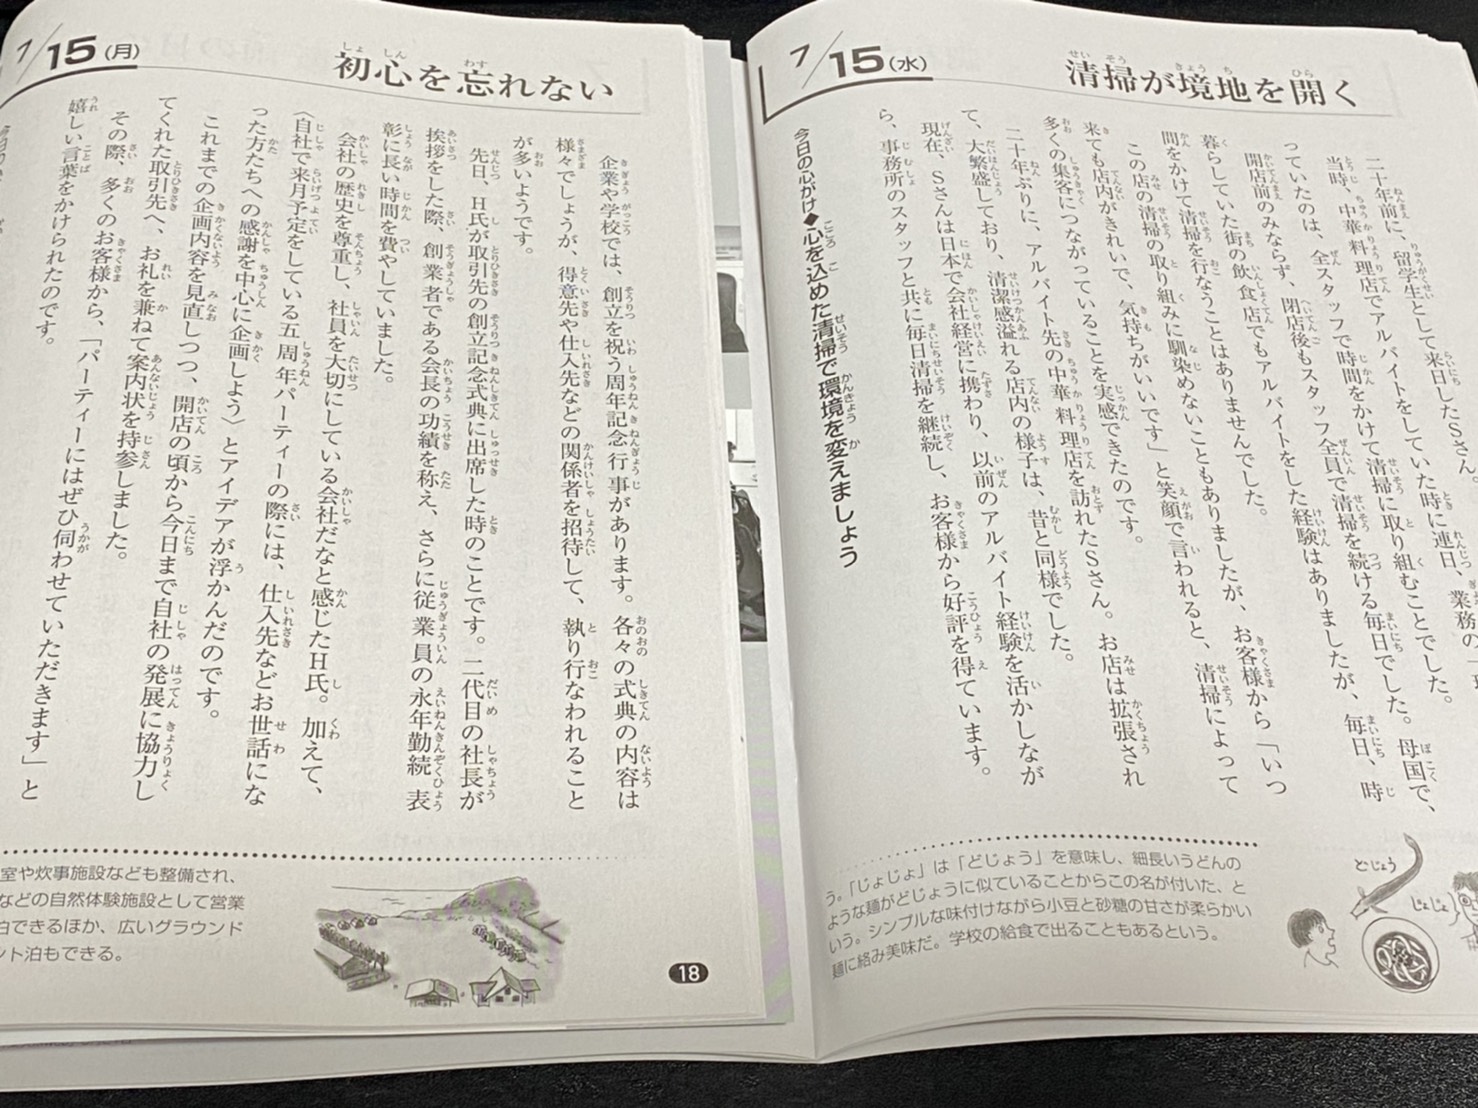 7/15(水)
清掃が境地を開く
二十年前に、留学生として来日したSさん。
当時、中華料理店でアルバイトをしていた時に連日、業務の
っていたのは、全スタッフで時間をかけて清掃に取り組むことでした。
開店前のみならず、閉店後もスタッフ全員で清掃を続ける毎日でした。母国で、
暮らしていた街の飲食店でもアルバイトをした経験はありましたが、毎日、時
間をかけて清掃を行なうことはありませんでした。
この店の清掃の取り組みに馴染めないこともありましたが、お客様から「いつ
来ても店内がきれいで、気持ちがいいです」と笑顔で言われると、清掃によって
多くの集客につながっていることを実感できたのです。
二十年ぶりに、アルバイト先の中華料理店を訪れたSさん。お店は拡張され
て、大繁盛しており、清潔感溢れる店内の様子は、昔と同様でした。
現在、Sさんは日本で会社経営に携わり、以前のアルバイト経験を活かしなが
ら、事務所のスタッフと共に毎日清掃を継続し、お客様から好評を得ています。
今日の心がけ◆心を込めた清掃で環境を変えましょう
う。「じょじょ」は「どじょう」を意味し、細長いうどんの
ような麺がどじょうに似ていることからこの名が付いた、と
いう。シンプルな味付けながら小豆と砂糖の甘さが柔らかい
麺に絡み美味だ。学校の給食で出ることもあるという。
どじょう
じょじょ
7/15(月)
初心を忘れない
企業や学校では、創立を祝う周年記念行事があります。各々の式典の内容は
様々でしょうが、得意先や仕入先などの関係者を招待して、執り行なわれること
が多いようです。
先日、H氏が取引先の創立記念式典に出席した時のことです。二代目の社長が
挨拶をした際、創業者である会長の功績を称え、さらに従業員の永年勤続表
彰に長い時間を費やしていました。
会社の歴史を尊重し、社員を大切にしている会社だなと感じたH氏。加えて、
〈自社で来月予定をしている五周年パーティーの際には、仕入先などお世話にな
った方たちへの感謝を中心に企画しよう〉とアイデアが浮かんだのです。
これまでの企画内容を見直しつつ、開店の頃から今日まで自社の発展に協力し
てくれた取引先へ、お礼を兼ねて案内状を持参しました。
その際、多くのお客様から、「パーティーにはぜひ伺わせていただきます」と
嬉しい言葉をかけられたのです。
室や炊事施設なども整備され、
などの自然体験施設として営業
泊できるほか、広いグラウンド
ント泊もできる。
18